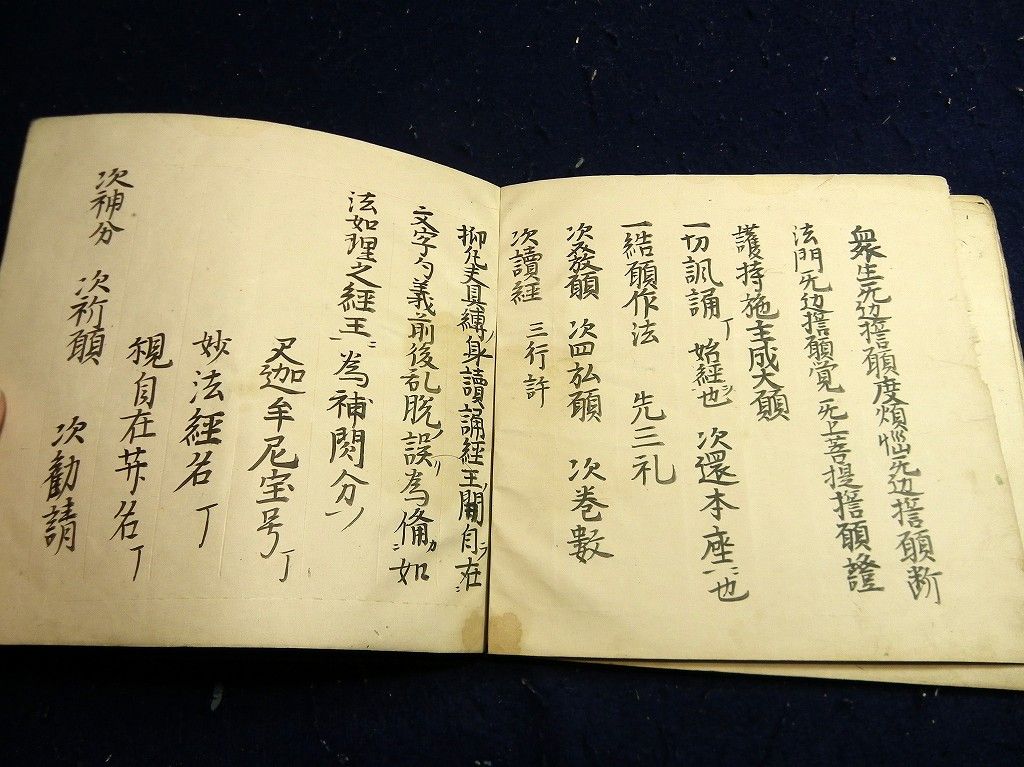 衆生无边誓願度煩悩无边誓願断
法門无边誓願覚 无上菩提誓願證
護持施主成大願
一切諷誦丁 始経ヲ也 次還本座ニ也
一結願作法 先三礼
次發願 次四弘願 次巻數
次讀經 三行許
抑 具縛ノ身讀誦經王ノ開自在ラニ
文字句義前後乱脱ノ誤リ為備カニ如
法如理之経王ニ為補闕分ノ
尺迦牟尼宝号丁
妙法經名丁
観自在菩薩名丁
次神分 次祈願 次勸請